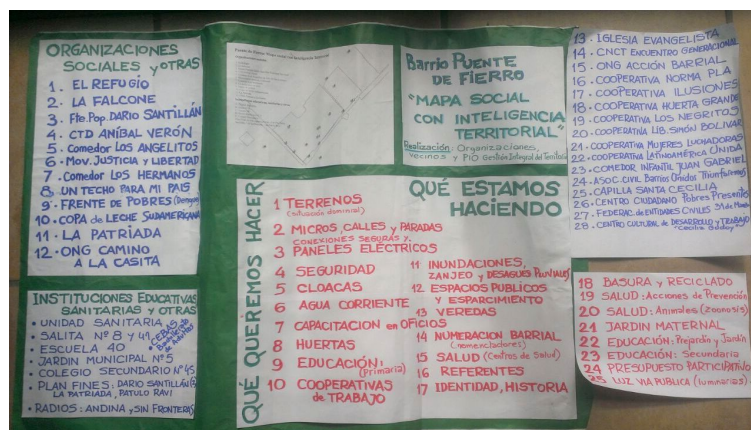 ORGANIZACIONES
SOCIALES y OTRAS
1. EL REFUGIO
2. LA FALCONE
3. Fte. Pop. DARIO SANTILLÁN
4. CTD ANÍBAL VERÓN
5. Comedor LOS ANGELITOS
6. Mov. JUSTICIA y LIBERTAD
7. Comedor LOS HERMANOS
8. UN TECHO PARA MI PAIS
9. FRENTE DE POBRES
10. COPA de LECHE SUDAMERICANA
11. LA PATRIADA
12. ONG CAMINO
A LA CASITA
INSTITUCIONES EDUCATIVAS
SANITARIAS y OTRAS
• UNIDAD SANITARIA
• SALITA Nº 8 y 47
CEBAS
• ESCUELA 40
• JARDIN MUNICIPAL Nº5
• COLEGIO SECUNDARIO Nº45
• PLAN FINES: DARIO SANTILLÁN
LA PATRIADA, PATULO RAVI
• RADIOS: ANDINA y SIN FRONTERAS
Barrio PUENTE
DE FIERRO
"MAPA SOCIAL
CON INTELIGENCIA
TERRITORIAL"
Realización: Organizaciones,
vecinos y PIO Gestión Integral del Territorio
QUÉ QUEREMOS HACER
QUÉ ESTAMOS
HACIENDO
1 TERRENOS
(situación dominial)
2 MICROS, CALLES y PARADAS
CONEXIONES SEGURAS y
3 PANELES ELÉCTRICOS
4 SEGURIDAD
5 CLOACAS
6 AGUA CORRIENTE
7 CAPACITACION en OFICIOS
8 HUERTAS
9 EDUCACIÓN:
(Primaria)
10 COOPERATIVAS
de TRABAJO
11 INUNDACIONES,
ZANJEO y DESAGUES PLUVIALES
12 ESPACIOS PUBLICOS
Y ESPARCIMIENTO
13 VEREDAS
14 NUMERACION BARRIAL
(nomencladores)
15 SALUD (Centros de Salud)
16 REFERENTES
17 IDENTIDAD, HISTORIA
13. IGLESIA EVANGELISTA
14. CNCT ENCUENTRO GENERACIONAL
15. ONG ACCIÓN BARRIAL
16. COOPERATIVA NORMA PLA
17. COOPERATIVA ILUSIONES
18. COOPERATIVA HUERTA GRANDE
19. COOPERATIVA LOS NEGRITOS
20. COOPERATIVA LIB. SIMÓN BOLIVAR
21. COOPERATIVA MUJERES LUCHADORAS
22. COOPERATIVA LATINOAMÉRICA UNIDA
23. COMEDOR INFANTIL JUAN GABRIEL
24. ASOC. CIVIL Barrios Unidos Triunfaremos
25. CAPILLA SANTA CECILIA
26. CENTRO CIUDADANO Pobres Presente
27. FEDERAC. de ENTIDADES CIVILES 31 de Mayo
28. CENTRO CULTURAL de DESARROLLO y TRABAJO
"Cecilia Godoy"
18 BASURA y RECICLADO
19 SALUD: Acciones de Prevención
20 SALUD: Animales (zoonosis)
21 JARDIN MATERNAL
22 EDUCACIÓN: Prejardín y Jardín
23 EDUCACIÓN: Secundaria
24 PRESUPUESTO PARTICIPATIVO
25 LUZ VIA PUBLICA (luminarias)